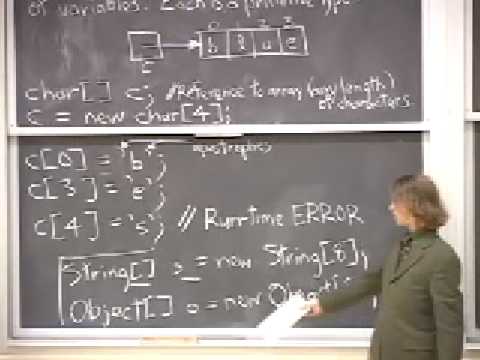 of variables. Each is a primitive type
0 2 3
b l u e
c
char[] c; //Reference to array (any length) of characters
c = new char[4];
c[0] = 'b';
apostrophes
c[3] = 'e';
c[4] = 's'; // Run-time ERROR
String[] s = new String[8];
Object[] o = new Object[